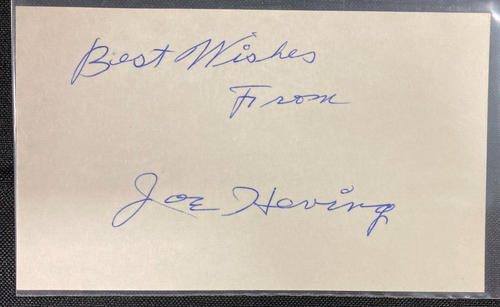 Best Wishes
From
Joe Heving